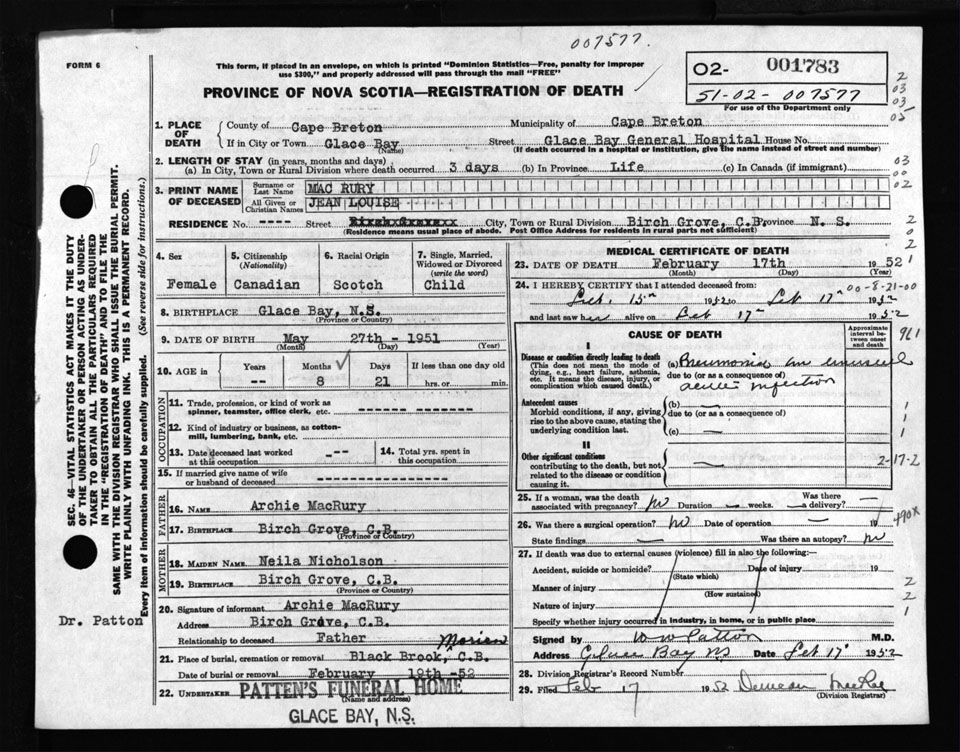 007577.
FORM 6
This form, if placed in an envelope, on which is printed "Dominion Statistics—Free, penalty for improper
use $300," and properly addressed will pass through the mail "FREE"
PROVINCE OF NOVA SCOTIA—REGISTRATION OF DEATH
02- 001783
51-02-007577
For use of the Department only
2
03
03
05
SEC. 46—VITAL STATISTICS ACT MAKES IT THE DUTY
OF THE UNDERTAKER OR PERSON ACTING AS UNDER-
TAKER TO OBTAIN ALL THE PARTICULARS REQUIRED
IN THE "REGISTRATION OF DEATH" AND TO FILE THE
SAME WITH THE DIVISION REGISTRAR WHO SHALL ISSUE THE BURIAL PERMIT.
WRITE PLAINLY WITH UNFADING INK. THIS IS A PERMANENT RECORD.
Every item of information should be carefully supplied. (See reverse side for instructions.)
Dr. Patton
1. PLACE OF DEATH
County of Cape Breton Municipality of Cape Breton
If in City or Town Glace Bay (Name) Street Glace Bay General Hospital House No.
(If death occurred in a hospital or institution, give the name instead of street and number)
2. LENGTH OF STAY (in years, months and days)
(a) In City, Town or Rural Division where death occurred 3 days (b) In Province Life (c) In Canada (if immigrant)
03
00
02
3. PRINT NAME OF DECEASED
Surname or Last Name MAC RURY
All Given or Christian Names JEAN LOUISE
RESIDENCE No. ---- Street City, Town or Rural Division Birch Grove, C.B. Province N. S.
(Residence means usual place of abode. Post Office Address for residents in rural parts not sufficient)
2
0
2
4. Sex
Female
5. Citizenship (Nationality)
Canadian
6. Racial Origin
Scotch
7. Single, Married, Widowed or Divorced (write the word)
Child
8. BIRTHPLACE Glace Bay, N.S.
(Province or Country)
9. DATE OF BIRTH May 27th - 1951
(Month) (Day) (Year)
10. AGE in
Years Months Days If less than one day old
-- 8 21 hrs. or min.
OCCUPATION
11. Trade, profession, or kind of work as
spinner, teamster, office clerk, etc. --------
12. Kind of industry or business, as cotton-
mill, lumbering, bank, etc.
13. Date deceased last worked
at this occupation ---
14. Total yrs. spent in
this occupation
15. If married give name of wife
or husband of deceased
FATHER
16. NAME Archie MacRury
17. BIRTHPLACE Birch Grove, C.B.
(Province or Country)
MOTHER
18. MAIDEN NAME Neila Nicholson
19. BIRTHPLACE Birch Grove, C.B.
(Province or Country)
20. Signature of informant Archie MacRury
Address Birch Grove, C.B.
Relationship to deceased Father
Morien
21. Place of burial, cremation or removal Black Brook, C.B.
Date of burial or removal February 19th -52
22. UNDERTAKER PATTEN'S FUNERAL HOME
(Name and address)
GLACE BAY, N.S.
MEDICAL CERTIFICATE OF DEATH
23. DATE OF DEATH February 17th 1952
(Month) (Day) (Year)
1
24. I HEREBY CERTIFY that I attended deceased from: 00-8-21-00
Feb. 15th 1952 to Feb 17th 1952
and last saw her alive on Feb 17th 1952
CAUSE OF DEATH
Approximate interval between onset and death
I
Disease or condition directly leading to death
(This does not mean the mode of
dying, e.g., heart failure, asthenia,
etc. It means the disease, injury, or
complication which caused death.)
(a) Pneumonia an unusual
due to (or as a consequence of)
acute infection
Antecedent causes
Morbid conditions, if any, giving
rise to the above cause, stating the
underlying condition last.
(b) —
due to (or as a consequence of)
(c) —
1
1
1
II
Other significant conditions
contributing to the death, but not
related to the disease or condition
causing it.
2-17-2
25. If a woman, was the death
associated with pregnancy? No Duration — weeks. Was there a delivery? —
26. Was there a surgical operation? No Date of operation — 19
490X
State findings — Was there an autopsy? No
27. If death was due to external causes (violence) fill in also the following:—
Accident, suicide or homicide? Date of injury 19
(State which)
Manner of injury
(How sustained)
Nature of injury
2
2
1
Specify whether injury occurred in industry, in home, or in public place
Signed by W W Patton M.D.
Address Glace Bay NS Date Feb 17 1952
28. Division Registrar's Record Number
29. Filed Feb 17 1952 Duncan MacRae
(Division Registrar)